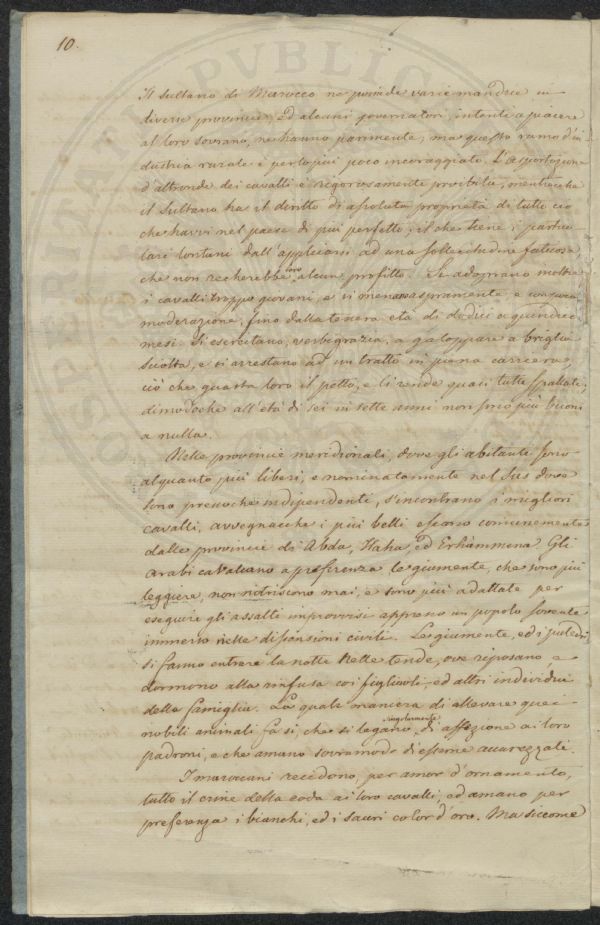 10.
Il sultano di Marocco ne possiede varie mandrie in
diverse provincie, ed alcuni governatori, intenti a piacere
al loro sovrano, ne hanno parimente; ma questo ramo d'in
dustria rurale è perlopiù poco incoraggiato. L'asportazione
d'altronde dei cavalli è rigorosamente proibita, mentrecche
il Sultano ha il diritto di assoluta proprietà di tutto ciò
che havvi nel paese di più perfetto; il che tiene i partico
lari lontani dall'applicarsi ad una sollecitudine faticosa
che non recherebbe loro alcun profitto. Si adoprano moltre
i cavalli troppo giovani, e si menano aspramente e senza
moderazione, fino dalla tenera età di dodici a quindici
mesi. Si esercitano, verbigrazia, a galoppare a briglia
sciolta, e si arrestano ad un tratto in piena carriera,
ciò che guasta loro il petto, e li rende quasi tutti spallati;
dimodoche all'età di sei in sette anni non sono più buoni
a nulla.
Nelle provincie meridionali, dove gli abitanti sono
alquanto più liberi, e nominatamente nel Sus dove
sono pressoche indipendenti, s'incontrano i migliori
cavalli, avvegnacche i più belli escano comunemente
dalle provincie di Abda, Haha, ed Erhammena. Gli
arabi cavalcano a preferenza le giumente, che sono più
leggiere, non nitriscono mai, e sono più adattate per
eseguire gli assalti improvvisi appresso un popolo sovente
immerso nelle dissensioni civili. Le giumente, ed i puledri
si fanno entrare la notte nelle tende, ove riposano, e
dormono alla rinfusa coi figliuoli, ed altri individui
della famiglia. La quale maniera di allevare quei
nobili animali fa sì, che si legano singolarmente di affezione ai loro
padroni, e che amano sovramodo di esserne accarezzati.
I maroccani recedono, per amor d'ornamento,
tutto il crine della coda ai loro cavalli, ed amano per
preferenza i bianchi, ed i sauri color d'oro. Ma siccome
PVBLIC